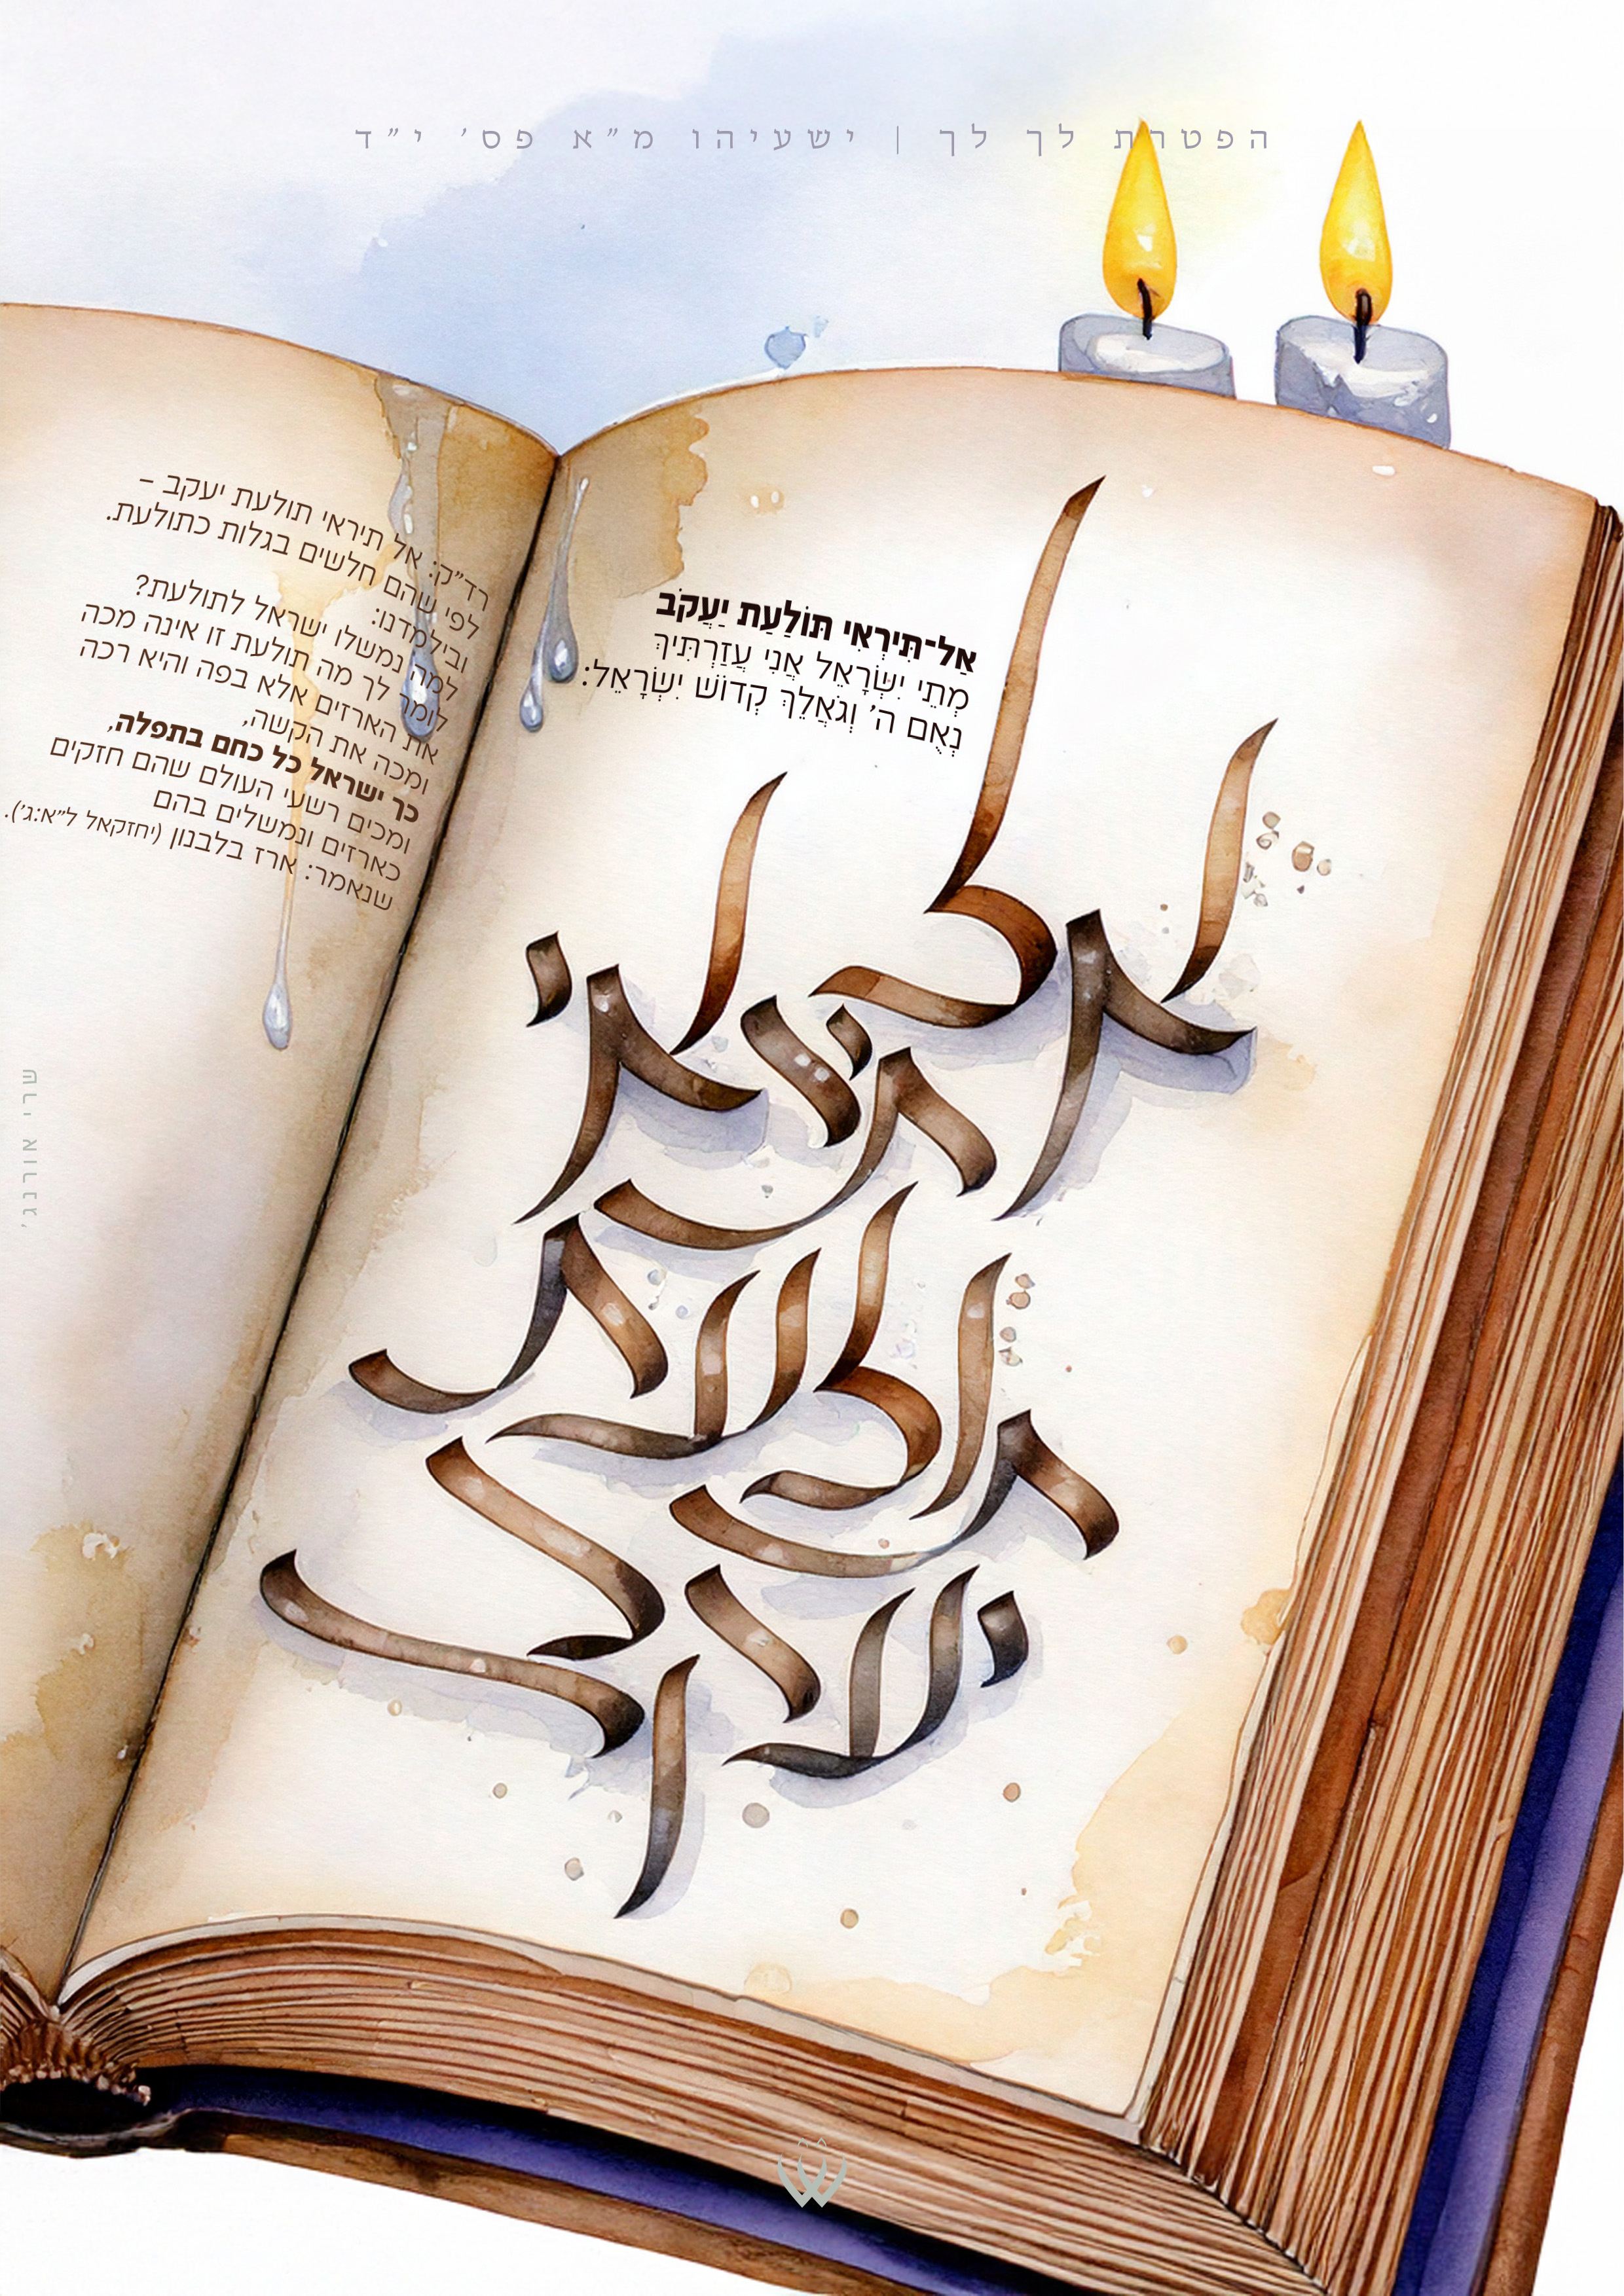 הפטרת לך לך | ישעיהו מ״א פס׳ י״ד
אַל־תִּירְאִי תּוֹלַעַת יַעֲקֹב
מְתֵי יִשְׂרָאֵל אֲנִי עֲזַרְתִּיךְ
נְאֻם ה׳ וְגֹאֲלֵךְ קְדוֹשׁ יִשְׂרָאֵל:
אל
תיראי
תולעת
יעקב
רד״ק: אל תיראי תולעת יעקב –
לפי שהם חלשים בגלות כתולעת.
ובילמדנו:
למה נמשלו ישראל לתולעת?
לומר לך מה תולעת זו אינה מכה
את הארזים אלא בפה והיא רכה
ומכה את הקשה,
כך ישראל כל כחם בתפלה,
ומכים רשעי העולם שהם חזקים
כארזים ונמשלים בהם
שנאמר: ארז בלבנון (יחזקאל ל״א:ג׳).
שרי אורנג׳